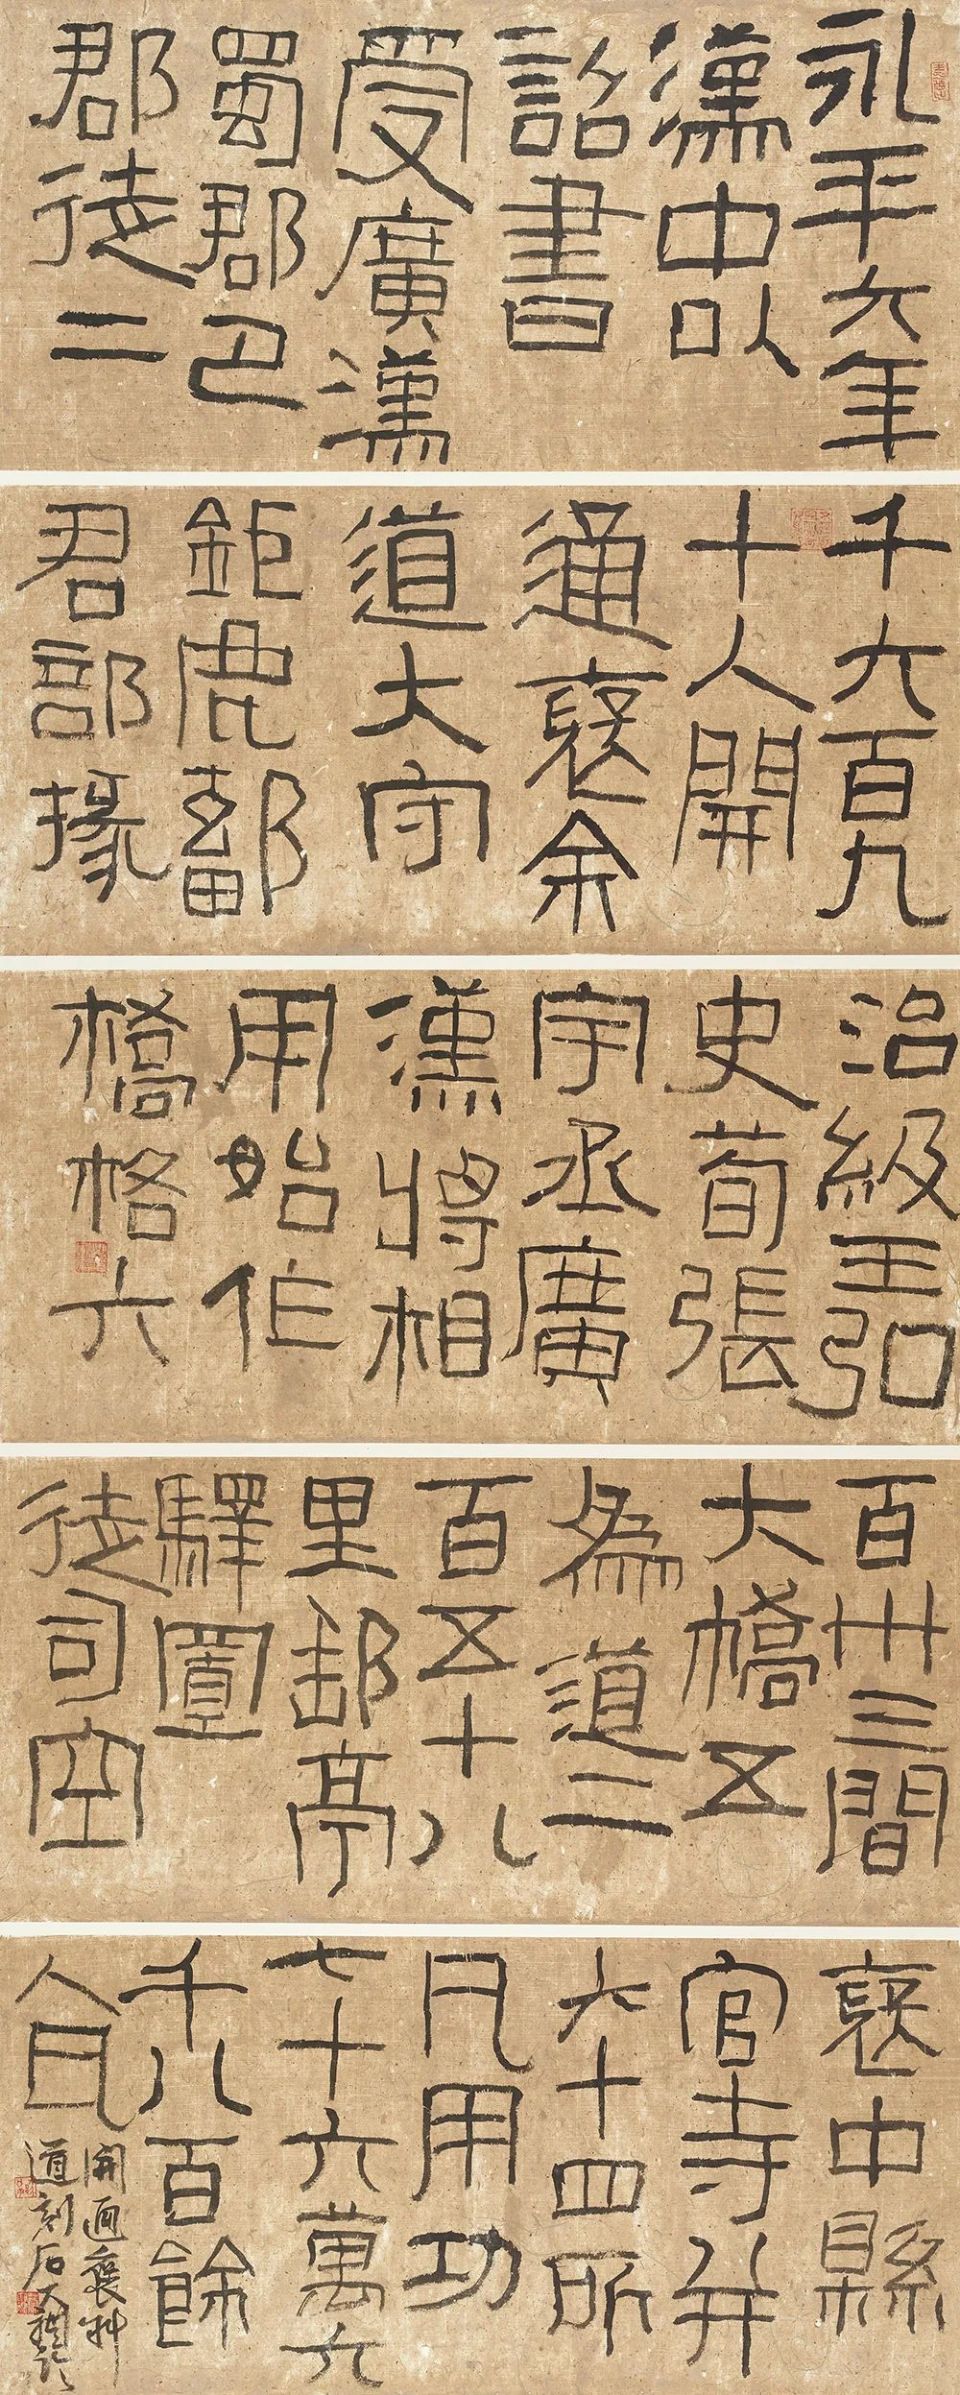 永平六年
漢中以
詔書
受廣漢
蜀郡巴
郡徒二
千六百九
十人開
通褒余
道大守
鉅鹿鄐
君部掾
冶級王弘
史荀張
宇丞廣
漢將相
用始作
橋格六
百卅三間
大橋五
為道二
百五十八
里郵亭
驛置
徒司空
褒中縣
官寺并
六十四所
凡用功
七十六萬六
千八百餘
人瓦
開通褒斜
道刻石